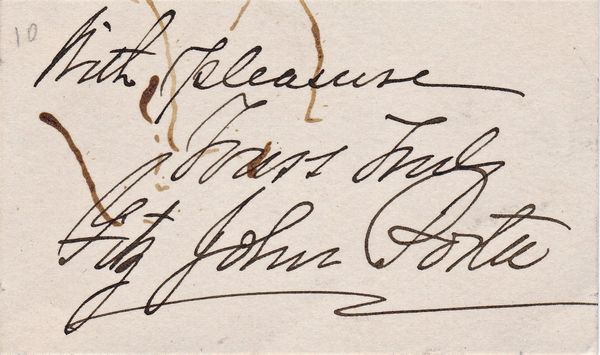 10
With pleasure
Yours Truly
Fitz John Porter